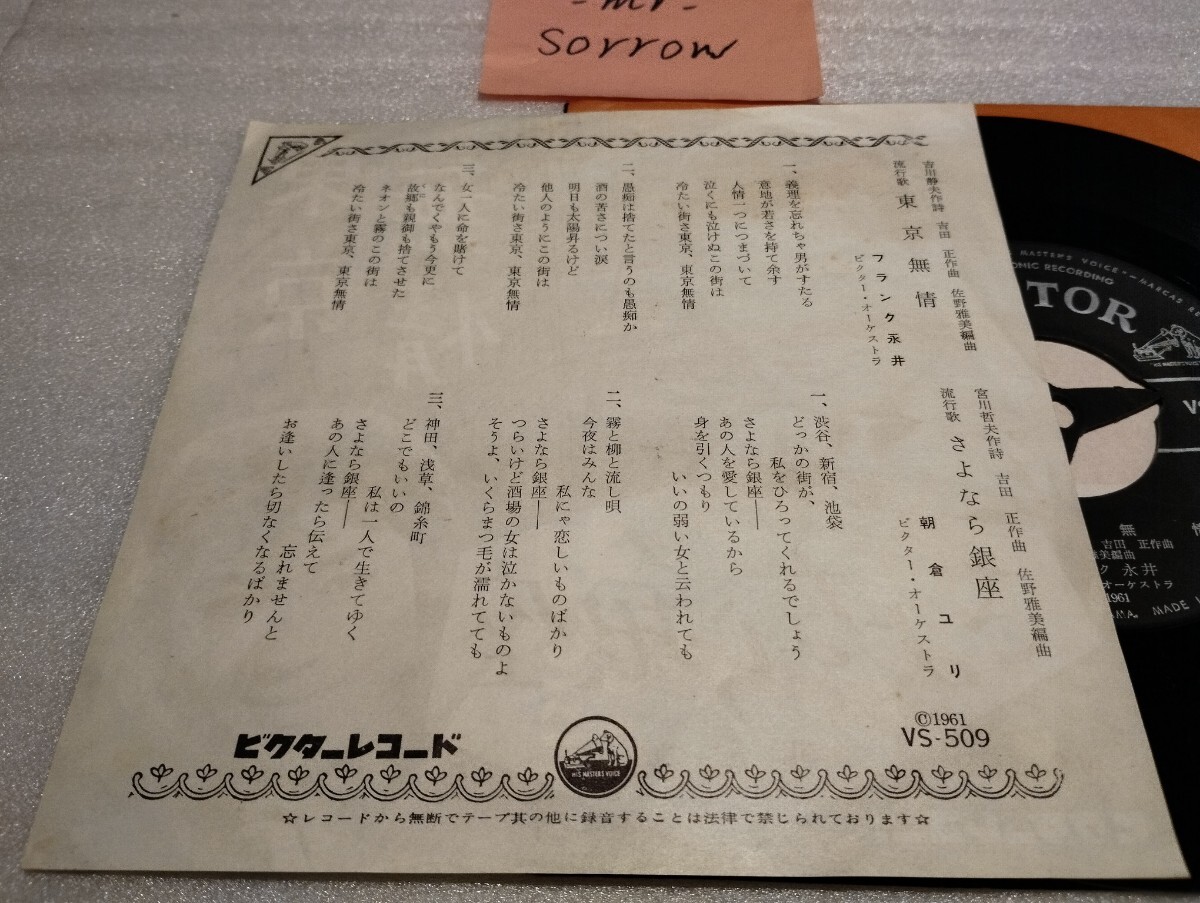 -mr-
sorrow
吉川静夫作詩 吉田 正作曲 佐野雅美編曲
流行歌 東京無情
フランク永井
ビクター・オーケストラ
一、義理を忘れちゃ男がすたる
意地が若さを持て余す
人情一つにつまづいて
泣くにも泣けぬこの街は
冷たい街さ東京、東京無情
二、愚痴は捨てたと言うのも愚痴か
酒の苦さについ涙
明日も太陽昇るけど
他人のようにこの街は
冷たい街さ東京、東京無情
三、女一人に命を賭けて
なんでくやもう今更に
故郷も親御も捨てさせた
ネオンと霧のこの街は
冷たい街さ東京、東京無情
宮川哲夫作詩 吉田 正作曲 佐野雅美編曲
流行歌 さよなら銀座
朝倉ユリ
ビクター・オーケストラ
一、渋谷、新宿、池袋
どっかの街が、
私をひろってくれるでしょう
さよなら銀座――
あの人を愛しているから
身を引くつもり
いいの弱い女と云われても
二、霧と柳と流し唄
今夜はみんな
私にゃ恋しいものばかり
さよなら銀座――
つらいけど酒場の女は泣かないものよ
そうよ、いくらまつ毛が濡れてても
三、神田、浅草、錦糸町
どこでもいいの
私は一人で生きてゆく
さよなら銀座――
あの人に逢ったら伝えて
忘れませんと
お逢いしたら切なくなるばかり
©1961
VS-509
ビクターレコード
HIS MASTER'S VOICE
☆レコードから無断でテープ其の他に録音することは法律で禁じられております☆
MASTER'S VOICE"-MARCAS RE
ONIC RECORDING
TOR
VS
無情
吉田 正作曲
雅美編曲
ク永井
オーケストラ
1961
MADE